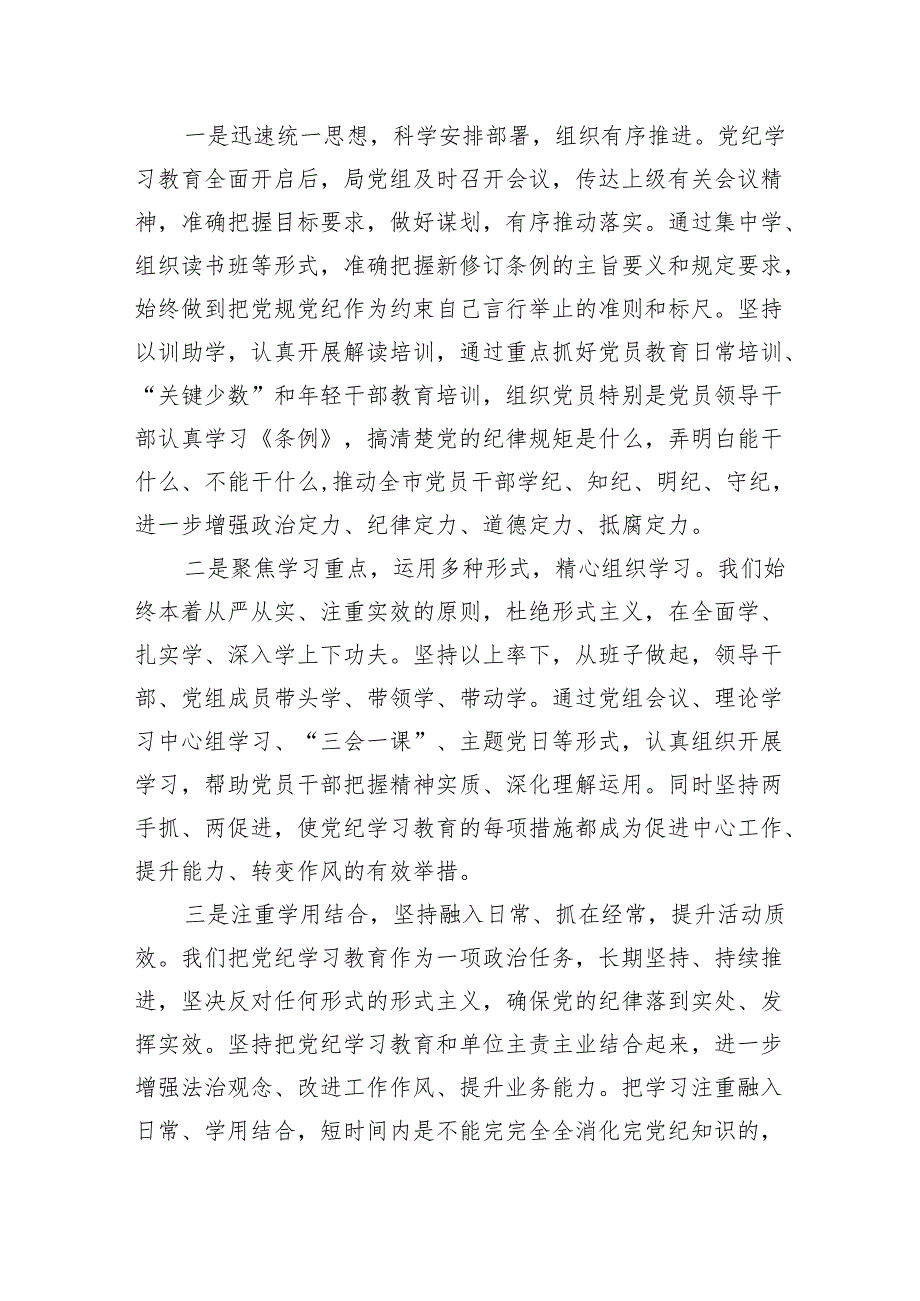 一是迅速统一思想，科学安排部署，组织有序推进。党纪学
习教育全面开启后，局党组及时召开会议，传达上级有关会议精
神，准确把握目标要求，做好谋划，有序推动落实。通过集中学、
组织读书班等形式，准确把握新修订条例的主旨要义和规定要求，
始终做到把党规党纪作为约束自己言行举止的准则和标尺。坚持
以训助学，认真开展解读培训，通过重点抓好党员教育日常培训、
“关键少数”和年轻干部教育培训，组织党员特别是党员领导干
部认真学习《条例》，搞清楚党的纪律规矩是什么，弄明白能干
什么、不能干什么,推动全市党员干部学纪、知纪、明纪、守纪，
进一步增强政治定力、纪律定力、道德定力、抵腐定力。
二是聚焦学习重点，运用多种形式，精心组织学习。我们始
终本着从严从实、注重实效的原则，杜绝形式主义，在全面学、
扎实学、深入学上下功夫。坚持以上率下，从班子做起，领导干
部、党组成员带头学、带领学、带动学。通过党组会议、理论学
习中心组学习、“三会一课”、主题党日等形式，认真组织开展
学习，帮助党员干部把握精神实质、深化理解运用。同时坚持两
手抓、两促进，使党纪学习教育的每项措施都成为促进中心工作、
提升能力、转变作风的有效举措。
三是注重学用结合，坚持融入日常、抓在经常，提升活动质
效。我们把党纪学习教育作为一项政治任务，长期坚持、持续推
进，坚决反对任何形式的形式主义，确保党的纪律落到实处、发
挥实效。坚持把党纪学习教育和单位主责主业结合起来，进一步
增强法治观念、改进工作作风、提升业务能力。把学习注重融入
日常、学用结合，短时间内是不能完完全全消化完党纪知识的，